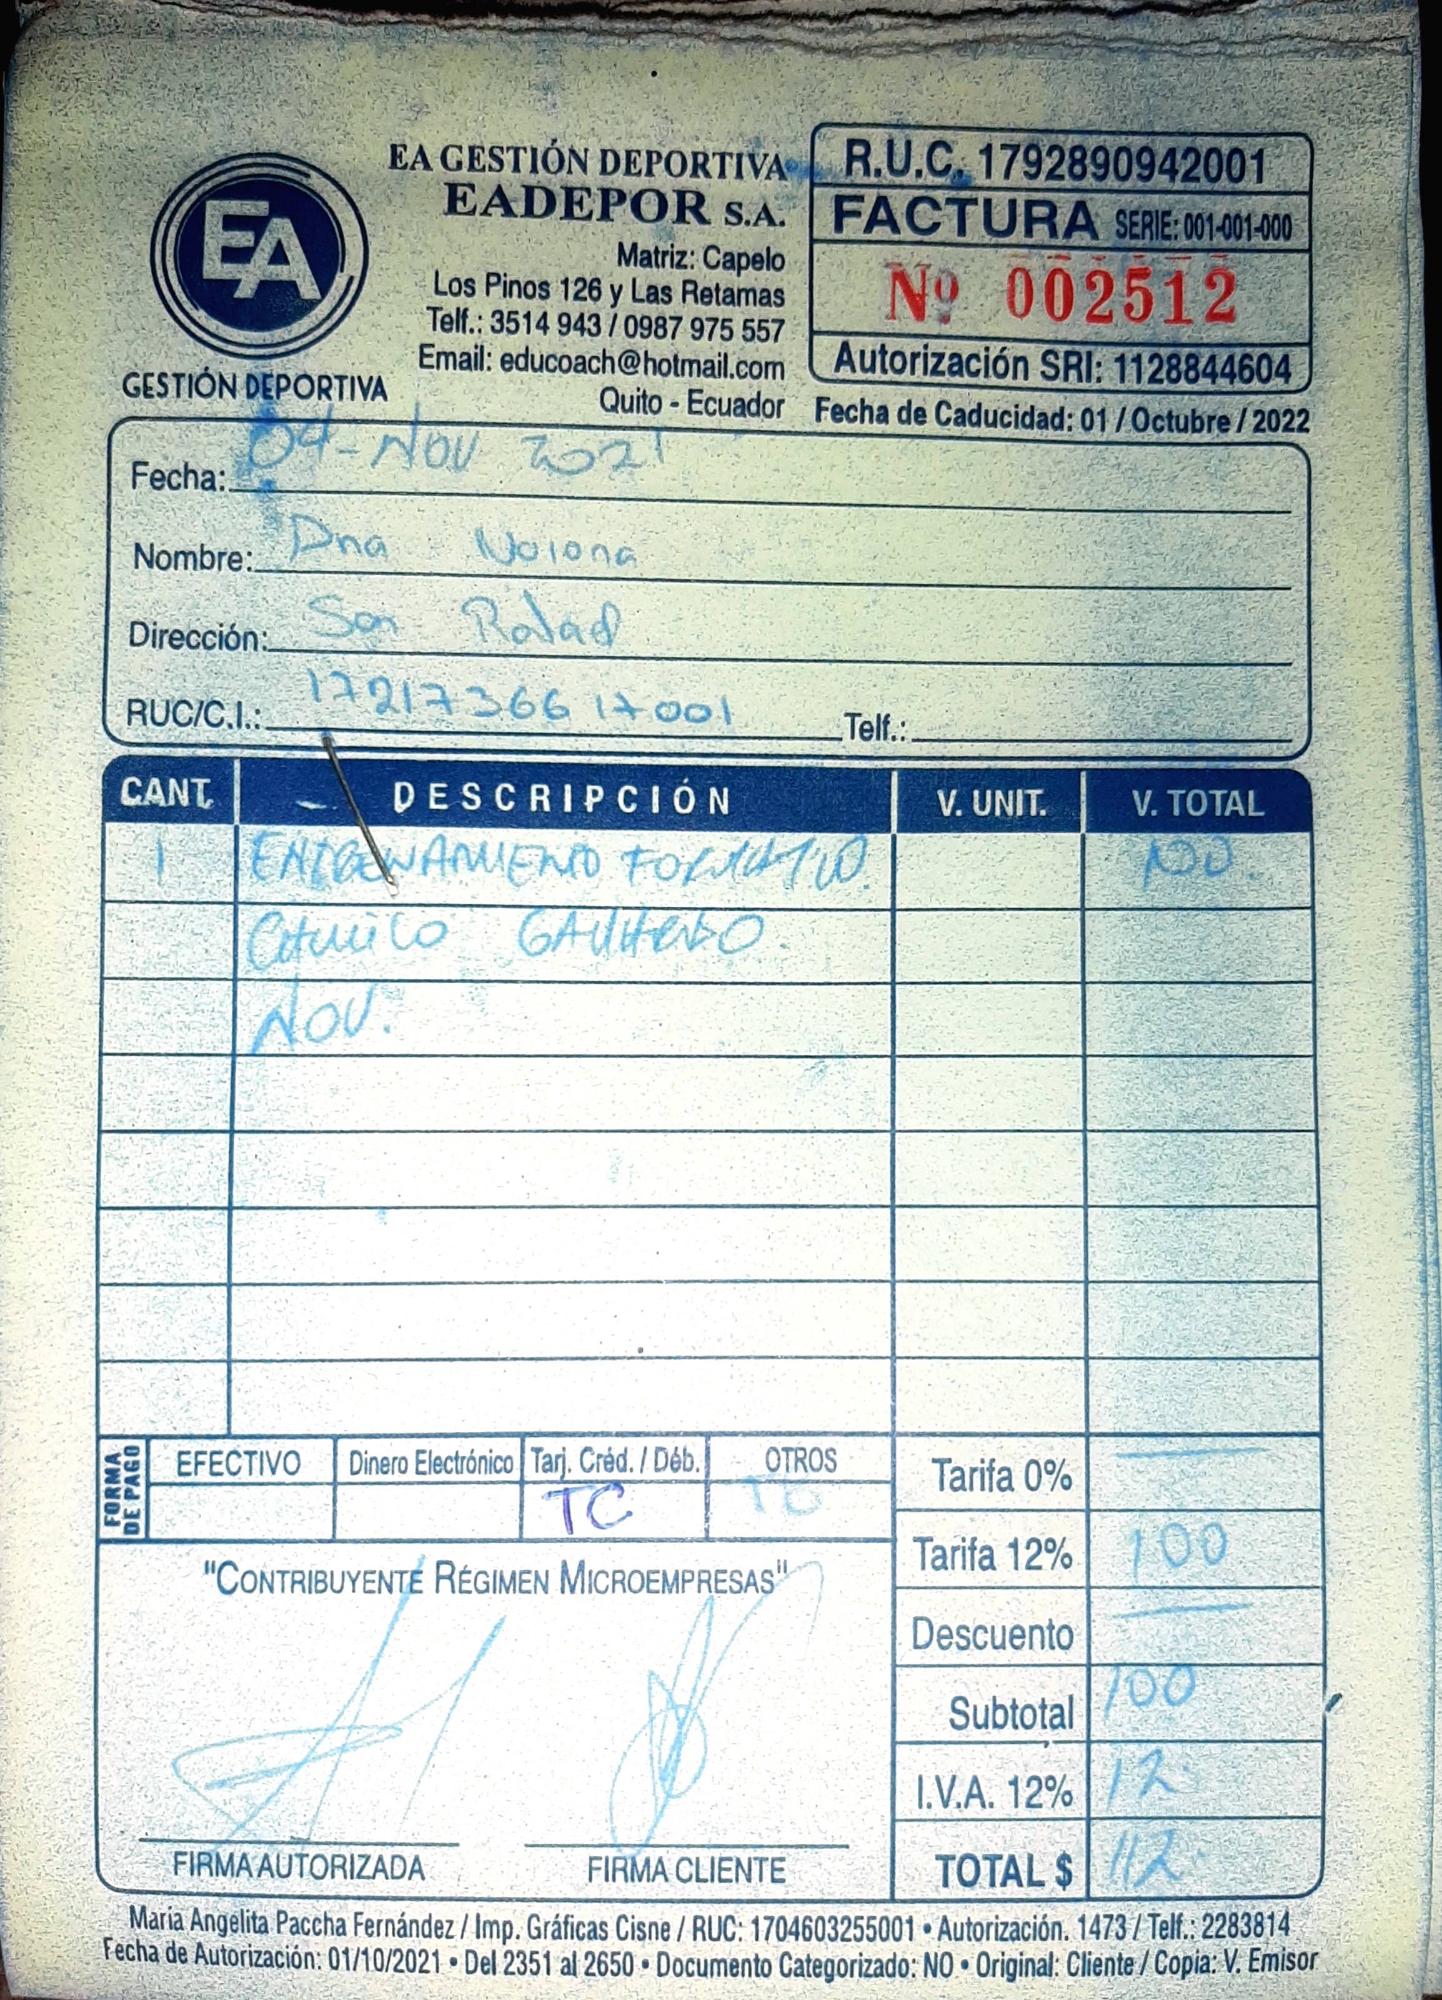 EA GESTIÓN DEPORTIVA
EADEPOR S.A.
Matriz: Capelo
Los Pinos 126 y Las Retamas
Telf.: 3514 943 / 0987 975 557
Email: educoach@hotmail.com
Quito - Ecuador
EA
GESTIÓN DEPORTIVA
R.U.C. 1792890942001
FACTURA SERIE: 001-001-000
Nº 002512
Autorización SRI: 1128844604
Fecha de Caducidad: 01 / Octubre / 2022
Fecha: 04-NOV 2021
Nombre: Noiona
Dirección: San
RUC/C.I.: 1721736617001 Telf.:
CANT. DESCRIPCIÓN V. UNIT. V. TOTAL
1 ENTRENAMIENTO FORMATIVO. 100.
Camilo
NOV.
FORMA DE PAGO
EFECTIVO Dinero Electrónico Tarj. Créd. / Déb. OTROS
TC TC
Tarifa 0% —
Tarifa 12% 100
Descuento —
Subtotal 100
I.V.A. 12% 12.
TOTAL $ 112.
"CONTRIBUYENTE RÉGIMEN MICROEMPRESAS"
FIRMA AUTORIZADA FIRMA CLIENTE
María Angelita Paccha Fernández / Imp. Gráficas Cisne / RUC: 1704603255001 • Autorización. 1473 / Telf.: 2283814
Fecha de Autorización: 01/10/2021 • Del 2351 al 2650 • Documento Categorizado: NO • Original: Cliente / Copia: V. Emisor